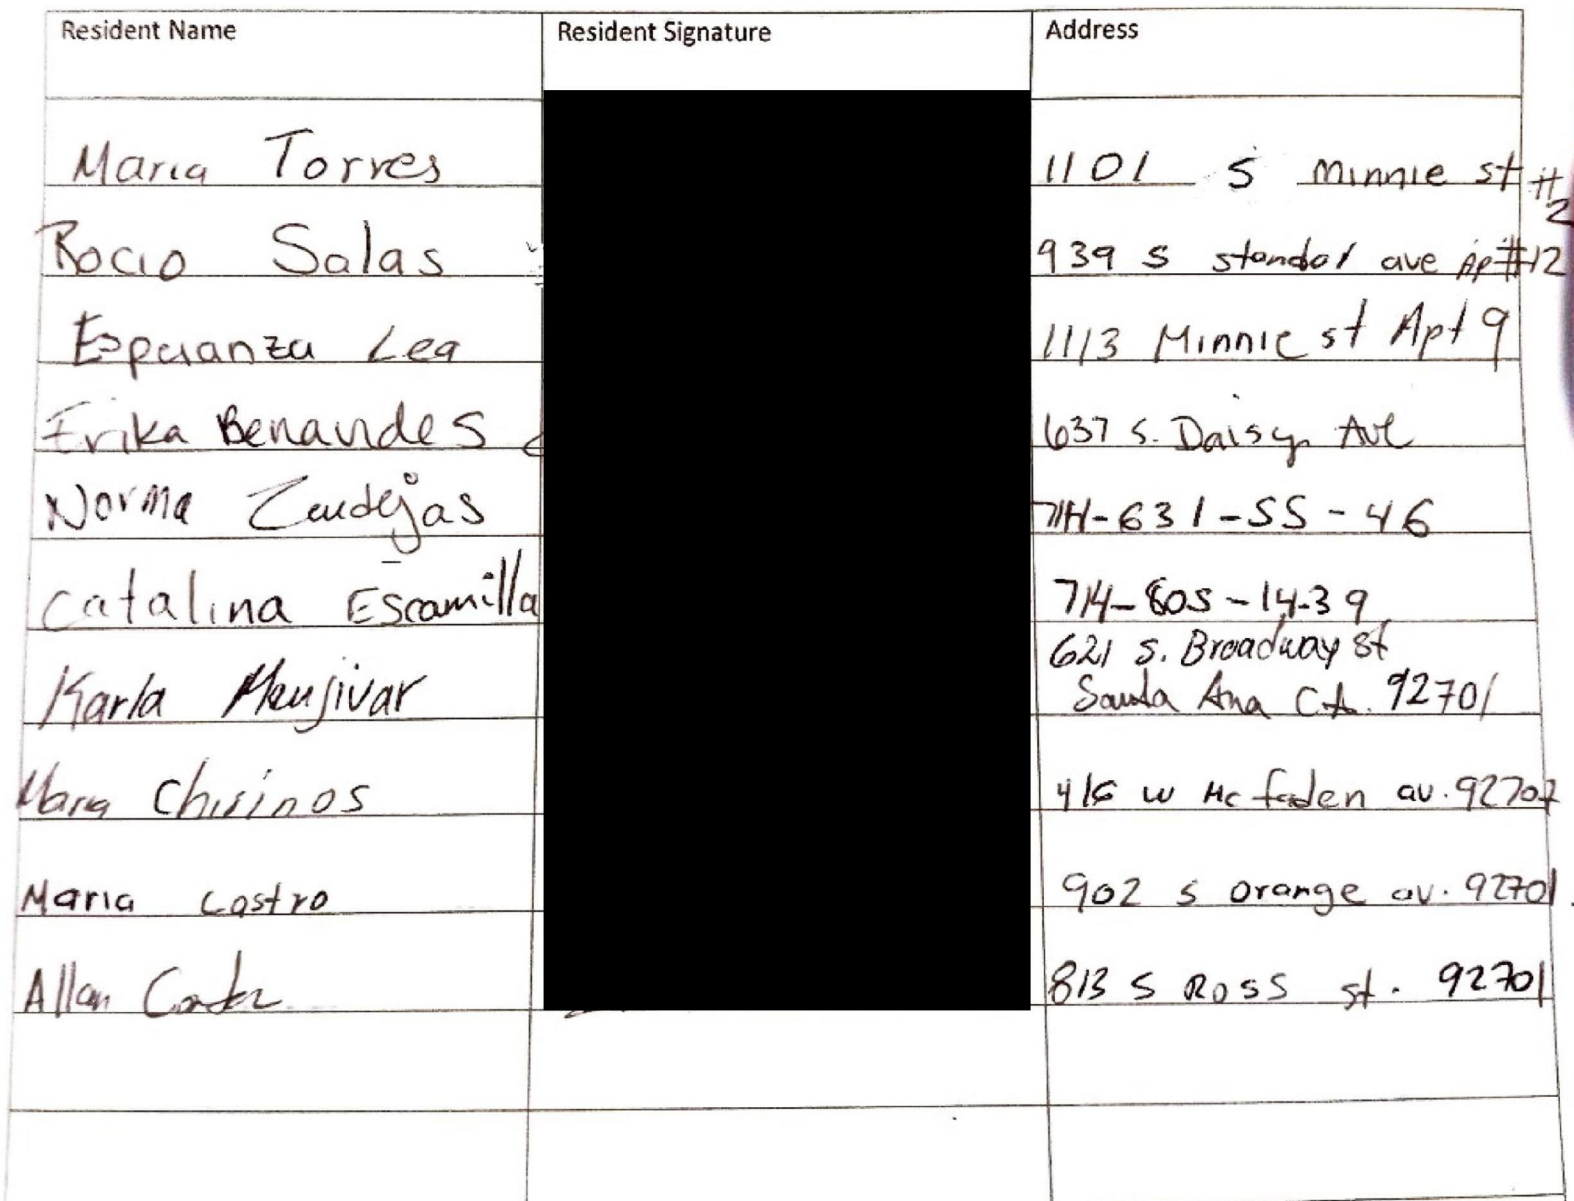 Resident Name Resident Signature Address
Maria Torres 1101 S Minnie st #2
Rocio Salas 939 S standar ave Ap#12
Esperanza Lea 1113 Minnie st Apt 9
Erika Benandes 637 S. Daisy Ave
Norma Zendejas 714-631-55-46
Catalina Escamilla 714-805-14-39
621 S. Broadway st
Karla Menjivar Santa Ana CA. 92701
Maria Chirinos 416 W Mc faden av. 92707
Maria Castro 902 S orange av. 92701
Allan 813 S ROSS st. 92701